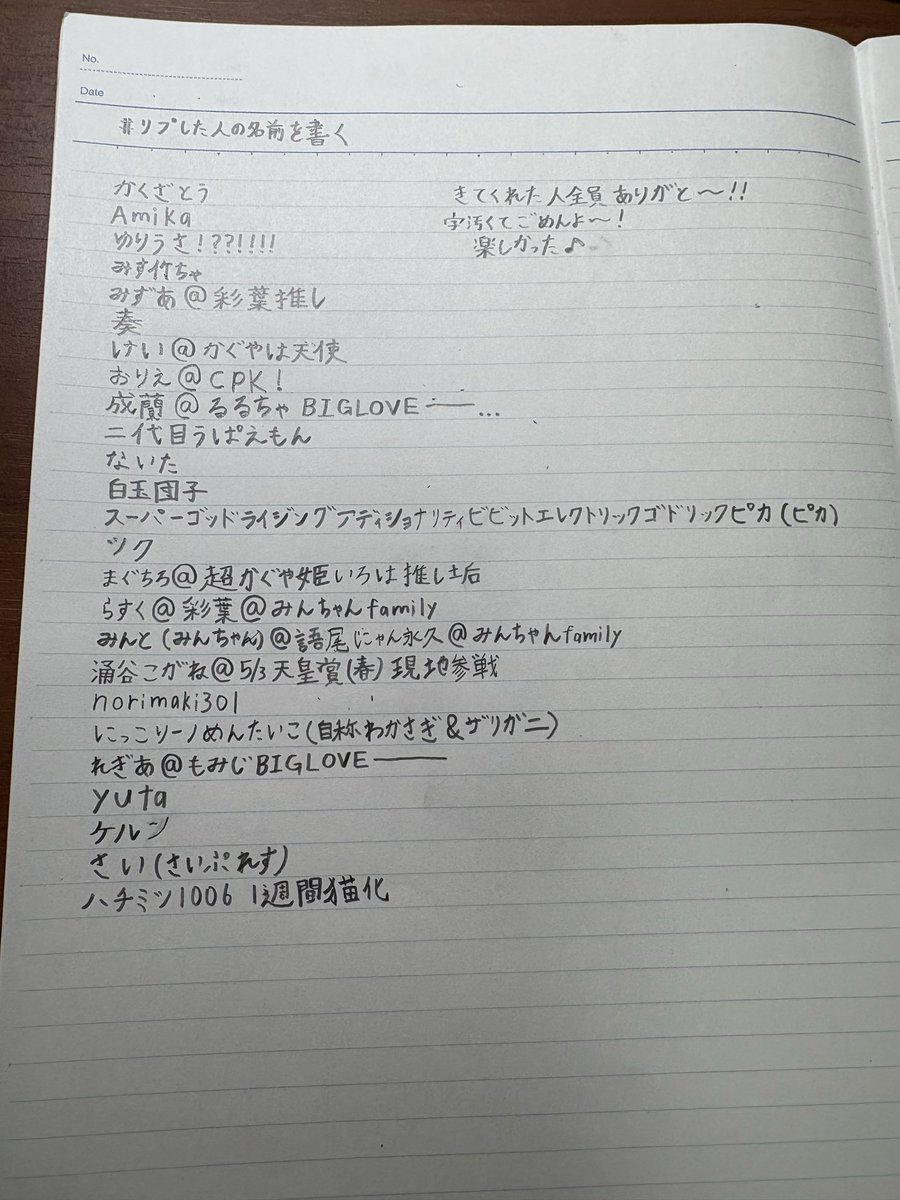 No.
Date
#リプした人の名前を書く
かくざとう
Amika
ゆりうさ!??!!!!
みす竹ちゃ
みずあ@彩葉推し
奏
けい@かぐやは天使
おりえ@CPK!
成蘭@るるちゃBIGLOVE――...
二代目うぱえもん
ないた
白玉団子
スーパーゴッドライジングアディショナリティビビットエレクトリックゴドリックピカ(ピカ)
ツク
まぐちろ@超かぐや姫いろは推し垢
らすく@彩葉@みんちゃんfamily
みんと(みんちゃん)@語尾にゃん永久@みんちゃんfamily
涌谷こがね@5/3天皇賞(春)現地参戦
norimaki301
にっこりーノめんたいこ(自称わかさぎ&ザリガニ)
れぎあ@もみじBIGLOVE―――
yuta
ケルン
さい(さいぷれす)
ハチミツ1006 1週間猫化
きてくれた人全員ありがと〜!!
字汚くてごめんよ〜!
楽しかった♪